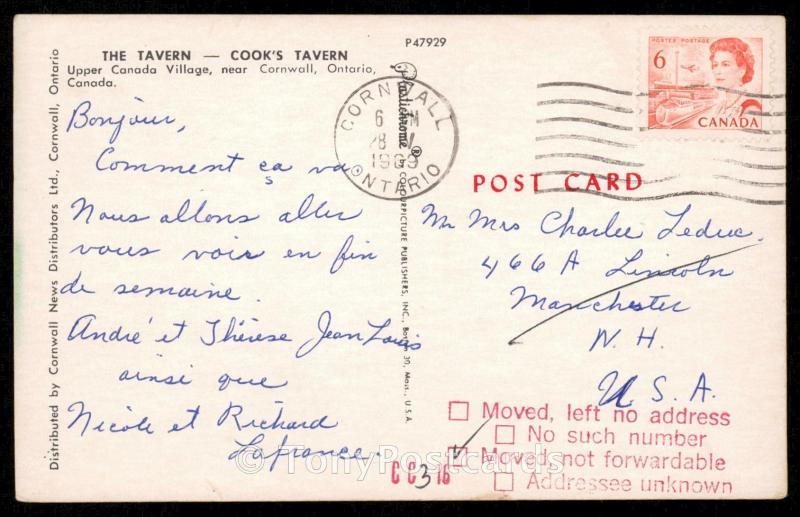 THE TAVERN — COOK'S TAVERN
Upper Canada Village, near Cornwall, Ontario,
Canada.
P47929
Bonjour,
Comment ça va
Nous allons aller
vous voir en fin
de semaine.
André et Thérèse Jean Louis
ainsi que
Nicole et Richard
Lafrance.
Distributed by Cornwall News Distributors Ltd., Cornwall, Ontario
Plastichrome ® by COLOURPICTURE PUBLISHERS, INC., Boston 30, Mass., U.S.A.
CORNWALL
6 M
28
1969
ONTARIO
POSTES POSTAGE
6
CANADA
POST CARD
Mr Mrs Charlie Leduc.
466A Lincoln
Manchester
N. H.
U.S.A.
Moved, left no address
No such number
Moved, not forwardable
Addressee unknown
CC 3 16
© TonyPostcards